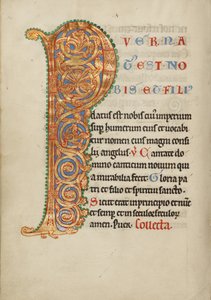 P VER NA
T EST NO
BIS ET FILI
datus est nobis cui imperium
sup humerum eius et vocabi
tur nomen eius magni consi
lii angelus V Cantate do
mino canticum novum qui
a mirabilia fecit Gloria pa
tri et filio et spiritui sancto
Sicut erat in principio et nunc
et semp et in secula seculor
amen Puer Collecta